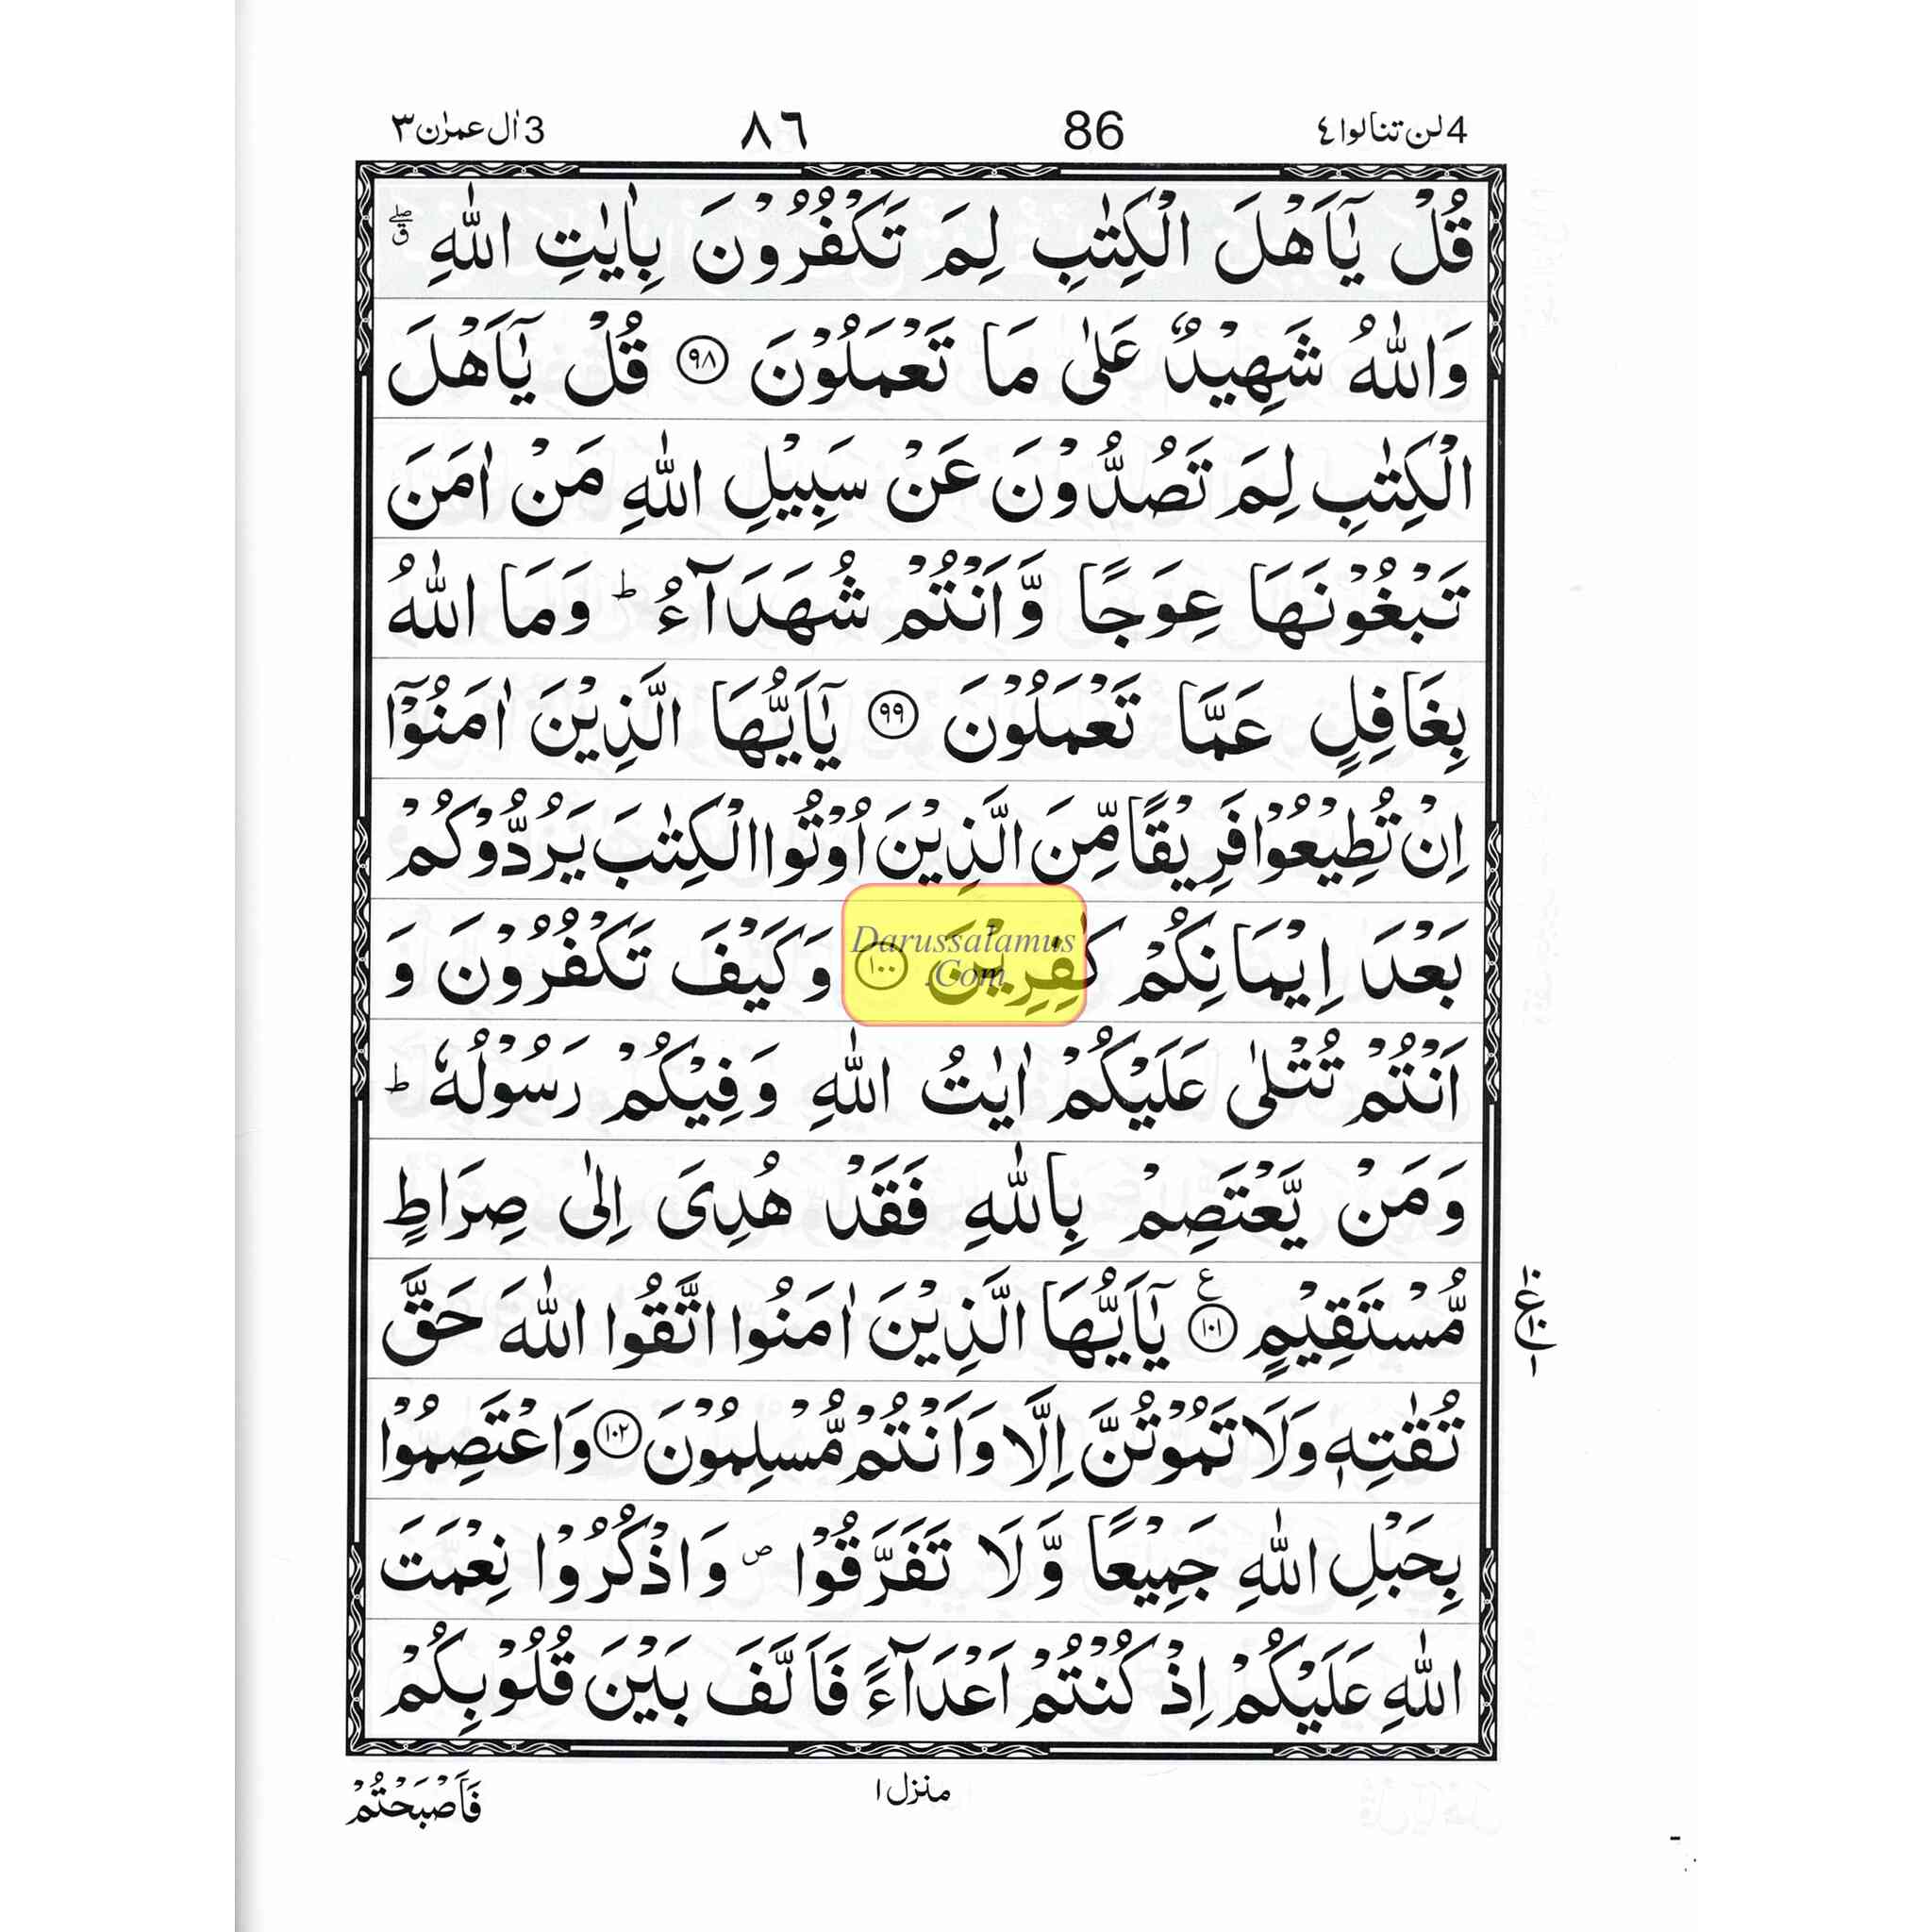 4 لن تنالوا ٤ 86 ٨٦ 3 اٰل عمرٰن ٣
قُلْ يٰٓاَهْلَ الْكِتٰبِ لِمَ تَكْفُرُوْنَ بِاٰيٰتِ اللّٰهِ ۖق
وَاللّٰهُ شَهِيْدٌ عَلٰى مَا تَعْمَلُوْنَ ﴿٩٨﴾ قُلْ يٰٓاَهْلَ
الْكِتٰبِ لِمَ تَصُدُّوْنَ عَنْ سَبِيْلِ اللّٰهِ مَنْ اٰمَنَ
تَبْغُوْنَهَا عِوَجًا وَّاَنْتُمْ شُهَدَآءُ ؕ وَمَا اللّٰهُ
بِغَافِلٍ عَمَّا تَعْمَلُوْنَ ﴿٩٩﴾ يٰٓاَيُّهَا الَّذِيْنَ اٰمَنُوْٓا
اِنْ تُطِيْعُوْا فَرِيْقًا مِّنَ الَّذِيْنَ اُوْتُوا الْكِتٰبَ يَرُدُّوْكُمْ
بَعْدَ اِيْمَانِكُمْ كٰفِرِيْنَ ﴿١٠٠﴾ وَكَيْفَ تَكْفُرُوْنَ وَ
Darussalamus
.Com
اَنْتُمْ تُتْلٰى عَلَيْكُمْ اٰيٰتُ اللّٰهِ وَفِيْكُمْ رَسُوْلُهٗ ؕ
وَمَنْ يَّعْتَصِمْ بِاللّٰهِ فَقَدْ هُدِىَ اِلٰى صِرَاطٍ
مُّسْتَقِيْمٍ ﴿١٠١﴾ ع يٰٓاَيُّهَا الَّذِيْنَ اٰمَنُوا اتَّقُوا اللّٰهَ حَقَّ
تُقٰتِهٖ وَلَا تَمُوْتُنَّ اِلَّا وَاَنْتُمْ مُّسْلِمُوْنَ ﴿١٠٢﴾ وَاعْتَصِمُوْا
بِحَبْلِ اللّٰهِ جَمِيْعًا وَّلَا تَفَرَّقُوْا ص وَاذْكُرُوْا نِعْمَتَ
اللّٰهِ عَلَيْكُمْ اِذْ كُنْتُمْ اَعْدَآءً فَاَلَّفَ بَيْنَ قُلُوْبِكُمْ
منزل ١
فَاَصْبَحْتُمْ